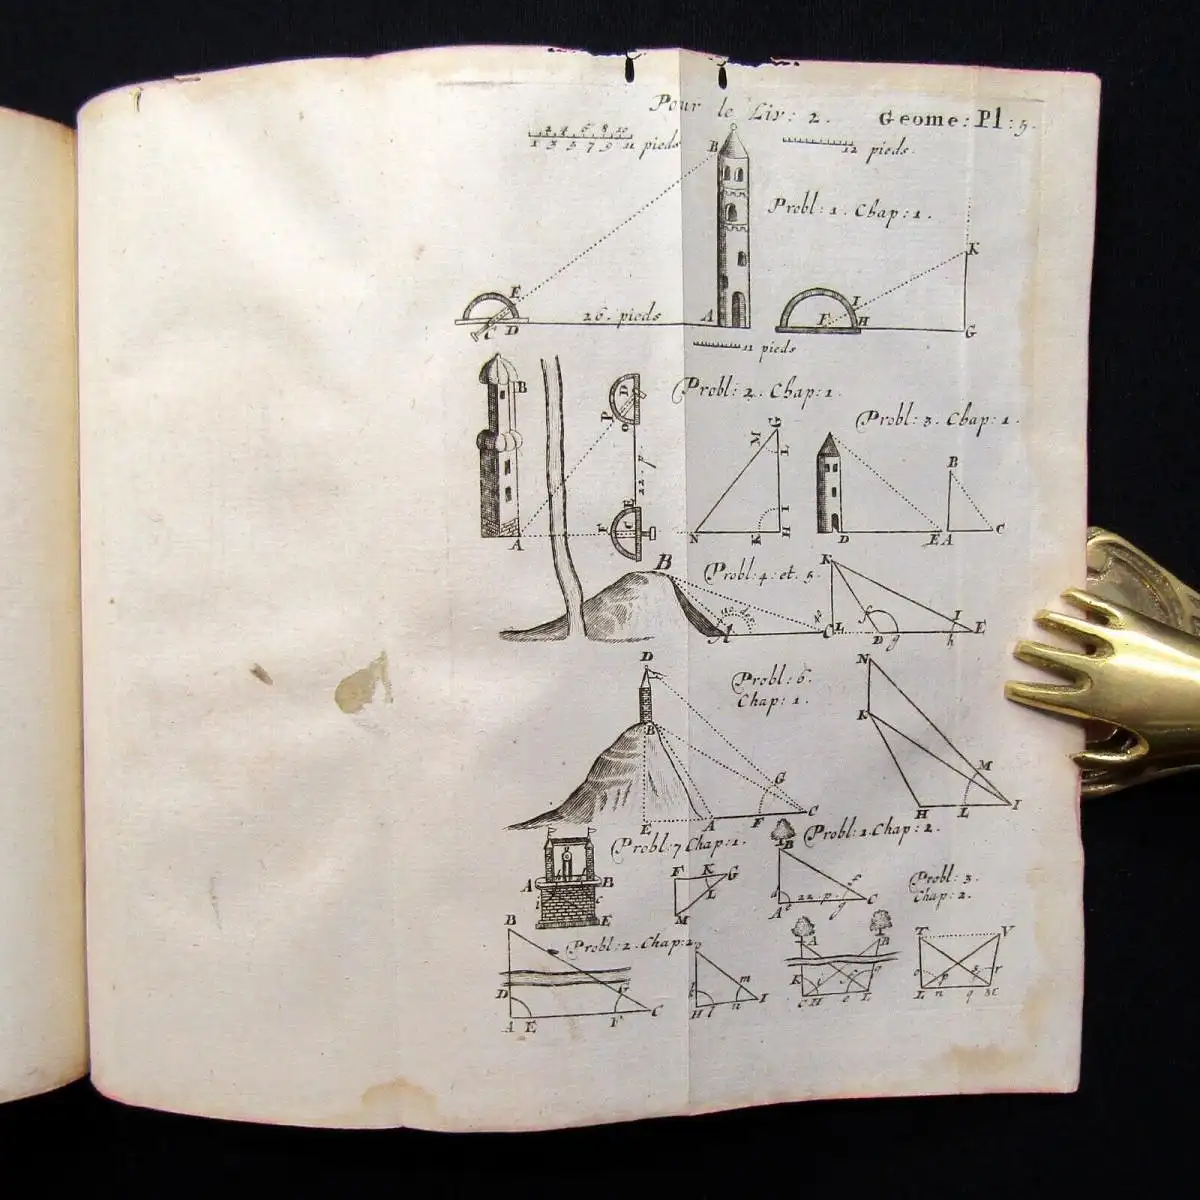 Pour le Liv: 2. Geome: Pl: 5.
2 4 6 8 10
1 3 5 7 9 11 pieds
12 pieds.
B
Probl: 1. Chap: 1.
K
E
26. pieds A
C D
I
F H
G
11 pieds
B
D
P
Probl: 2. Chap: 1.
Probl: 3. Chap: 1.
G
M
L
B
22 p
E
F C
I
A
N K H
D E A C
B
Probl: 4. et. 5.
K
f I
A C L D g h E
D
Probl: 6.
Chap: 1.
N
B
K
G
M
E A F C
H L I
Probl: 7 Chap: 1.
Probl: 1. Chap: 2.
B
A B
i c
E
F K G
L
M
d f
A e 22. p. g C
Probl: 3.
Chap: 2.
B
Probl: 2. Chap: 2.
A B
T V
D
G
C
A E F
m
H l n I
K
C H e L
o p s r
L n q M